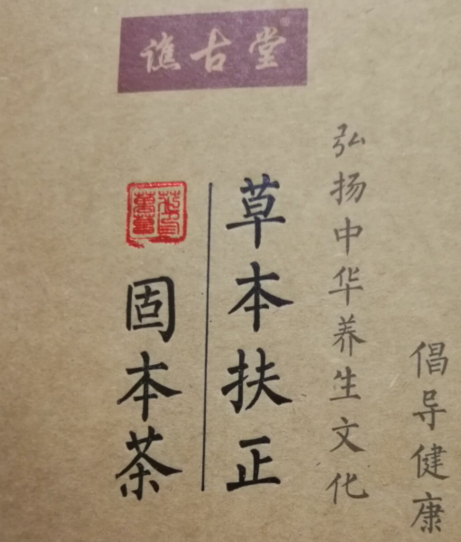 谯古堂®
倡导健康
弘扬中华养生文化
草本扶正
固本茶